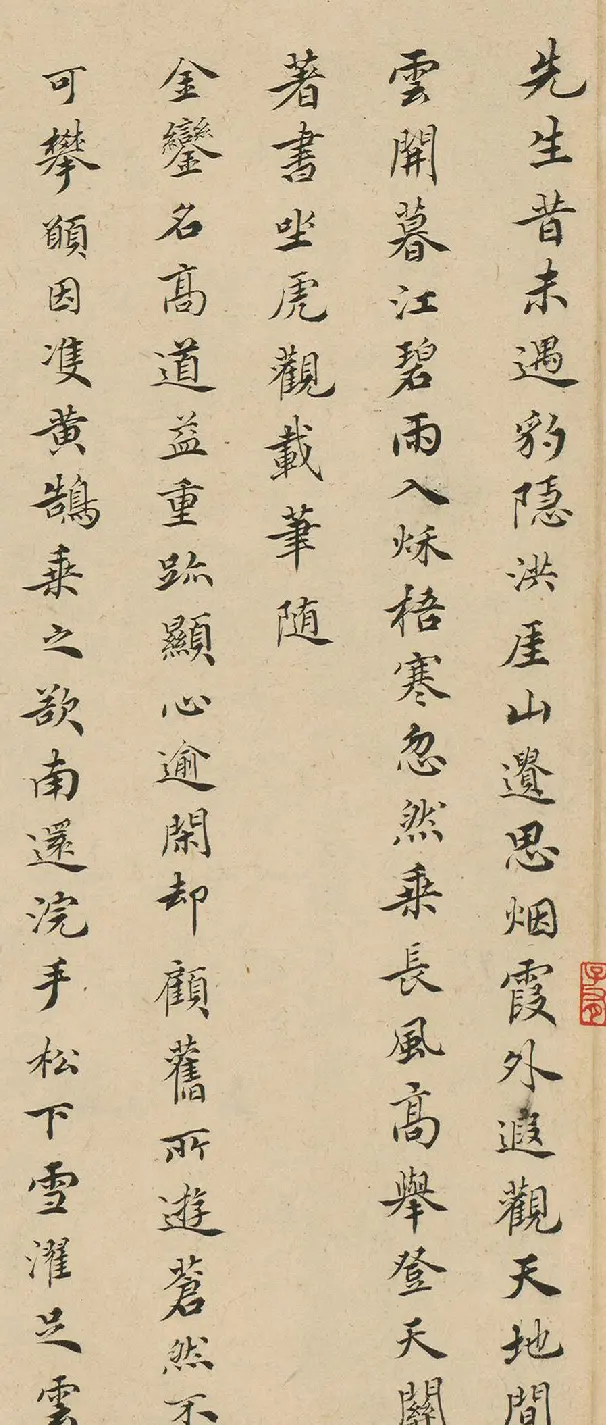 先生昔未遇豹隱洪厓山邁思烟霞外遐觀天地間
雲開暮江碧雨入秌梧寒忽然乗長風高舉登天關
著書坐虎觀載筆随
金鑾名高道益重跡顯心逾閑却顧舊所遊蒼然不
可攀願因隻黄鵠乗之欲南還浣手松下雪濯足雲